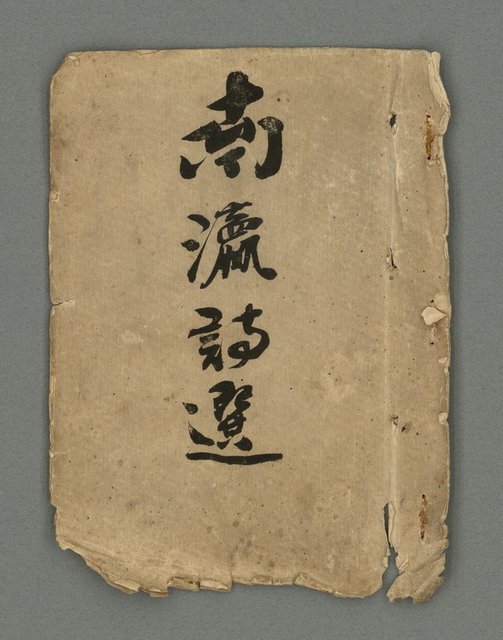 南瀛詩選